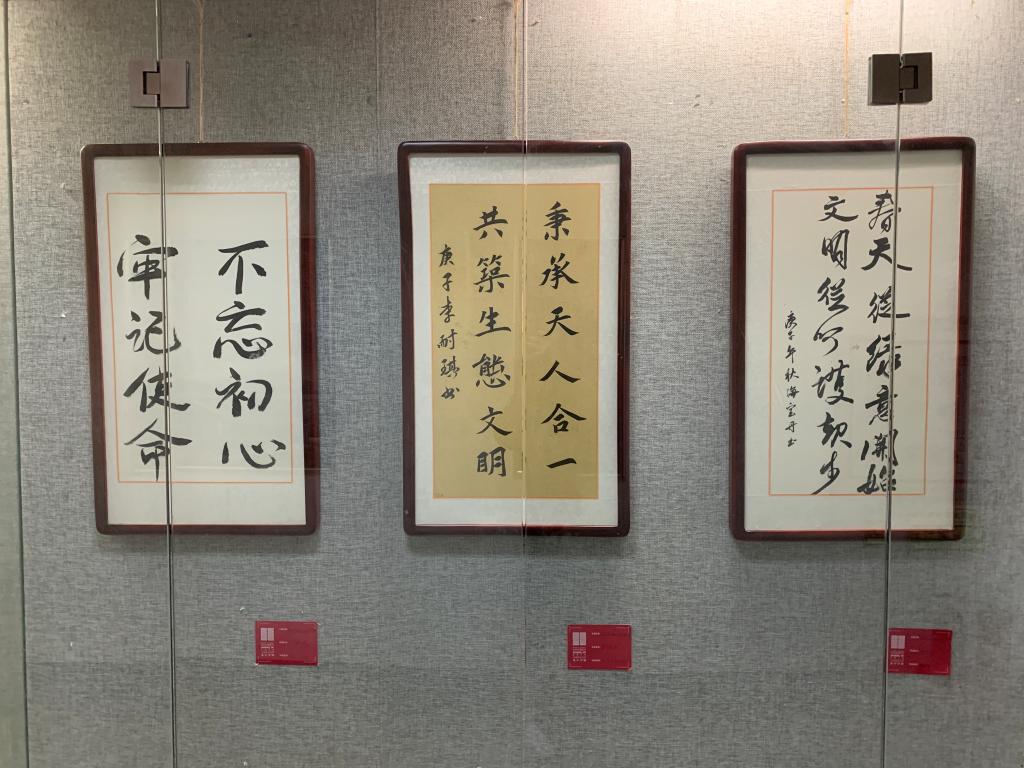 不忘初心
牢记使命
秉承天人合一
共築生態文明
庚子李耐书
春天從绿意開始
文明從呵護起步
庚子年秋海书